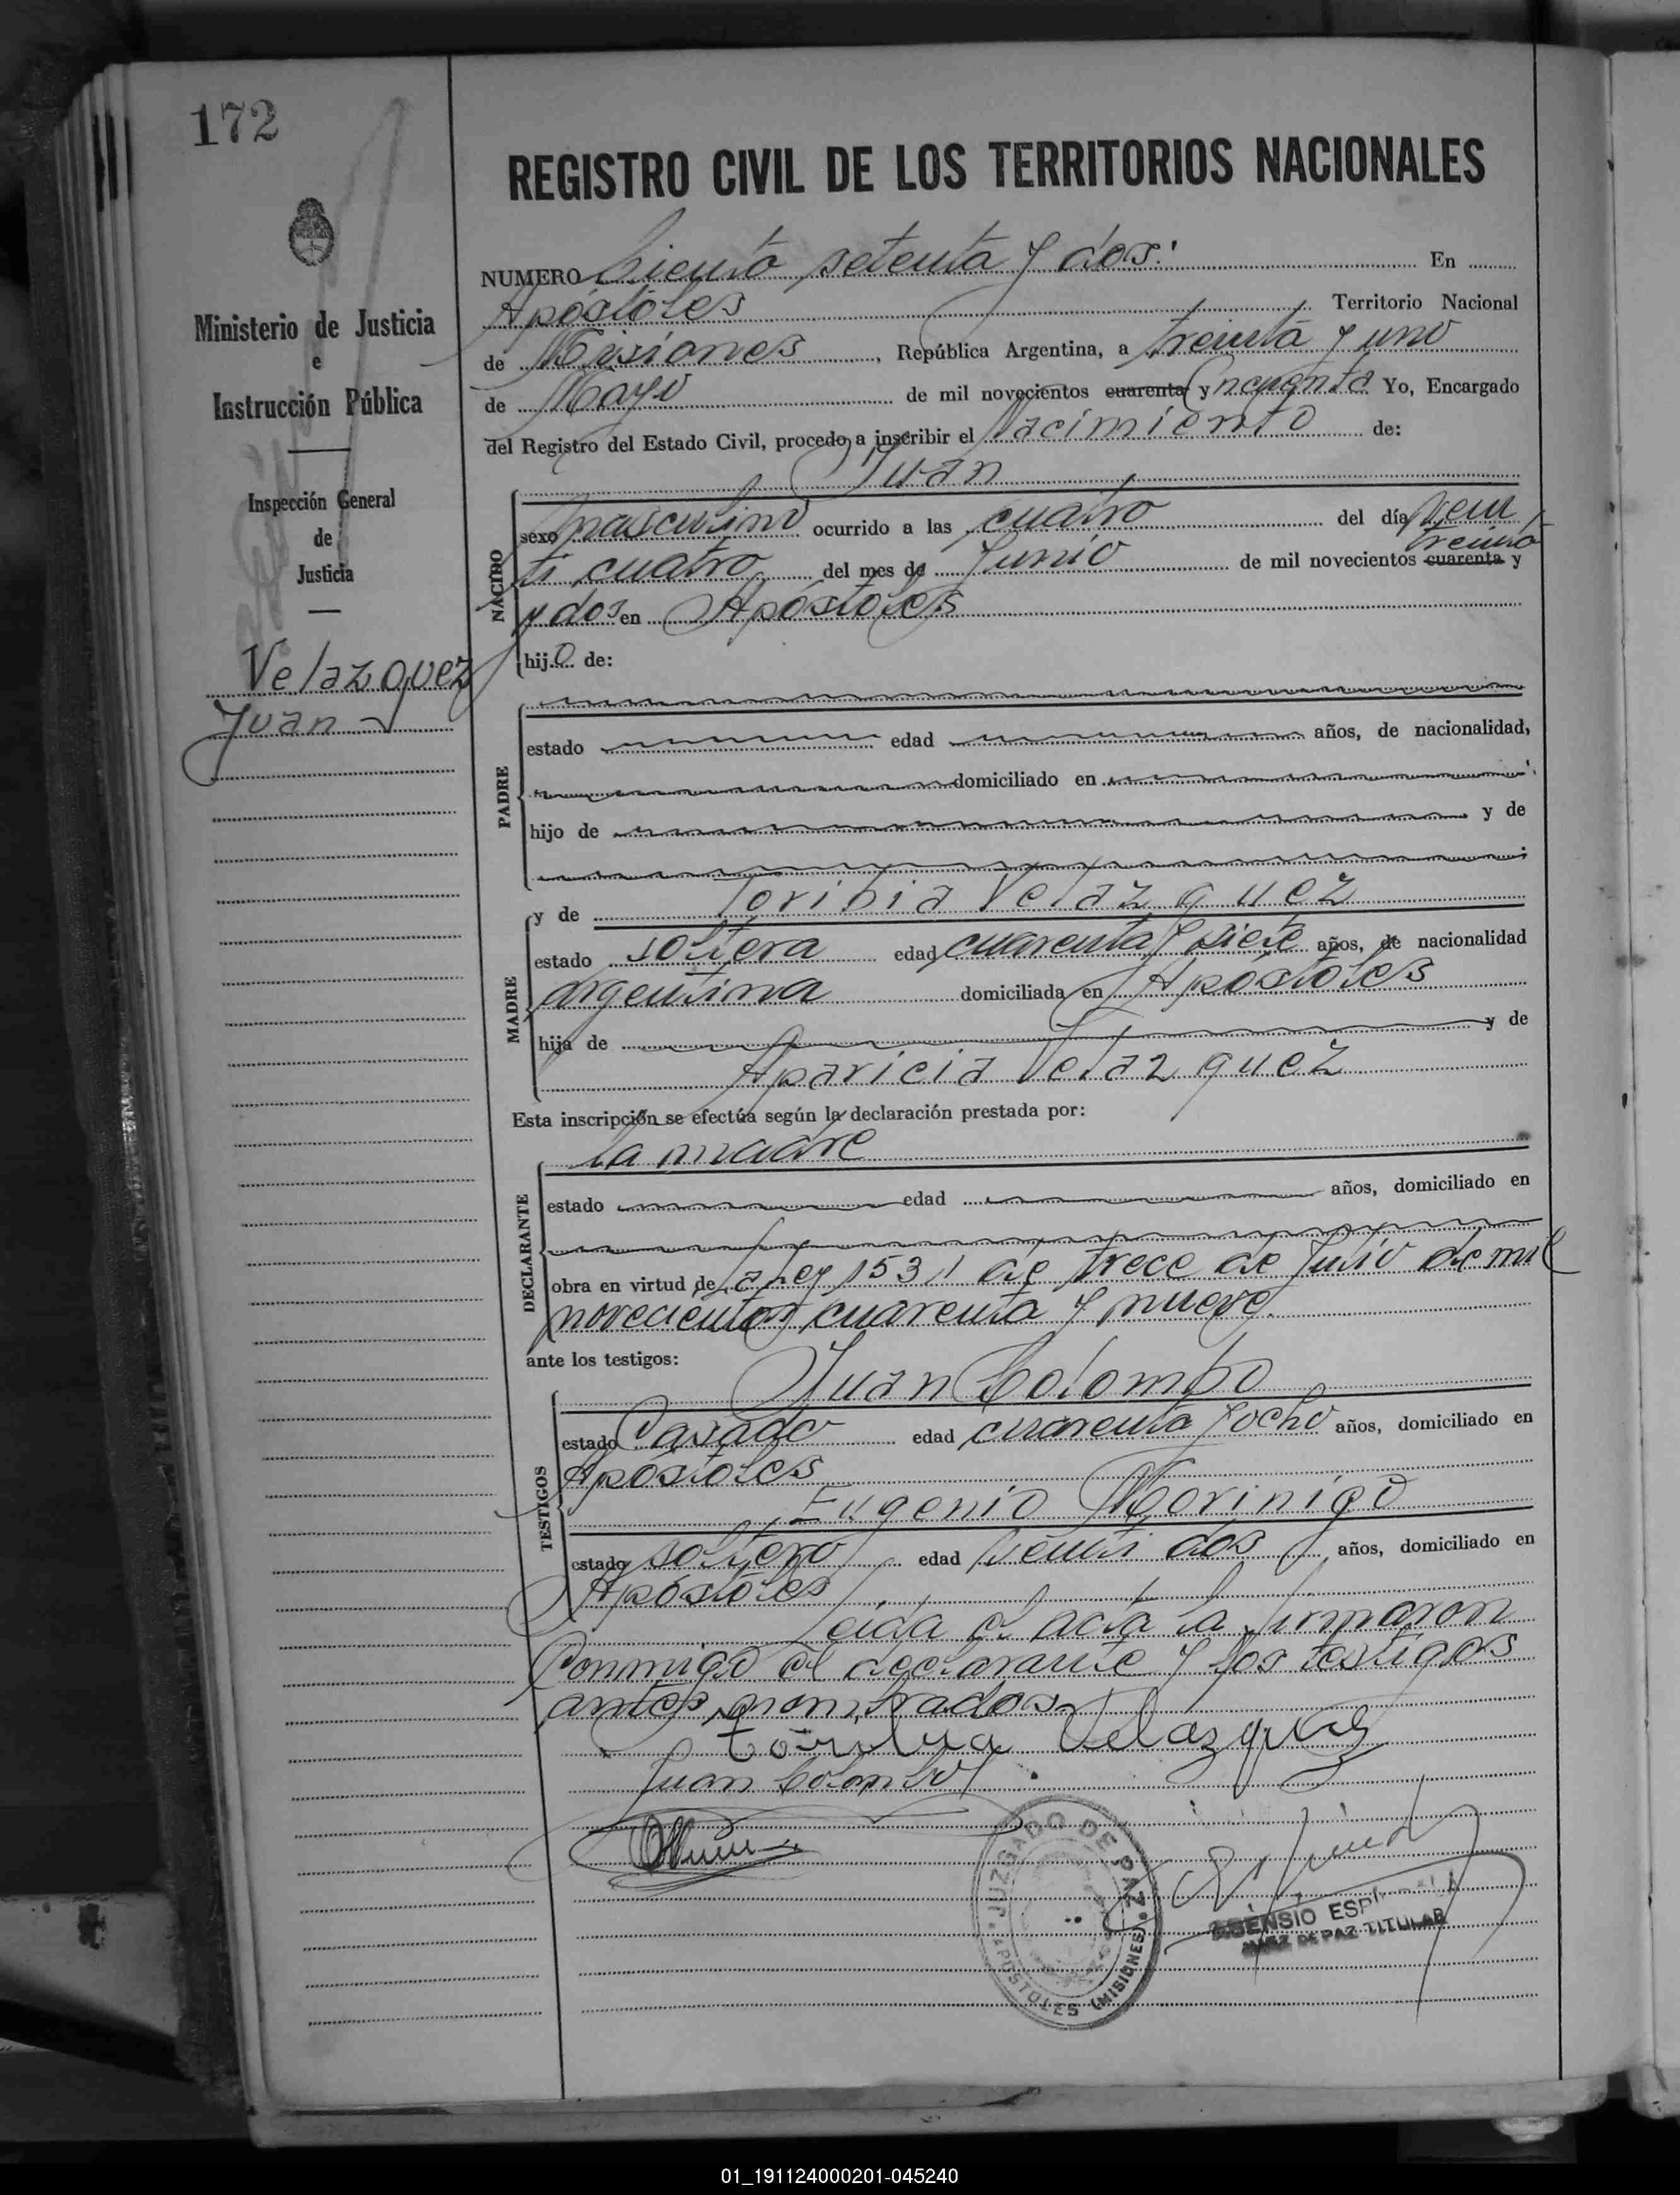 172
REGISTRO CIVIL DE LOS TERRITORIOS NACIONALES
NUMERO Ciento setenta y dos: En
Apóstoles Territorio Nacional
de Misiones, República Argentina, a treinta y uno
de Mayo de mil novecientos cuarenta y Cincuenta Yo, Encargado
del Registro del Estado Civil, procedo a inscribir el Nacimiento de:
Juan
Ministerio de Justicia
e
Instrucción Pública
Inspección General
de
Justicia
Velazquez
Juan
NACIDO
sexo masculino ocurrido a las cuatro del día vein
treinta
ti cuatro del mes de Junio de mil novecientos cuarenta y
y dos en Apóstoles
hijo de:
PADRE
estado edad años, de nacionalidad,
domiciliado en
hijo de y de
MADRE
y de Toribia Velazquez
estado soltera edad cuarenta y siete años, de nacionalidad
argentina domiciliada en Apóstoles
hija de y de
Aparicia Velazquez
Esta inscripción se efectúa según la declaración prestada por:
la madre
DECLARANTE
estado edad años, domiciliado en
obra en virtud de La Ley 1531 de trece de Julio de mil
novecientos cuarenta y nueve.
ante los testigos:
Juan Colombo
TESTIGOS
estado Casado edad cuarenta y ocho años, domiciliado en
Apóstoles
Eugenio Morinigo
estado soltero edad veinti dos años, domiciliado en
Apóstoles
Leida el acta la firmaron
Conmigo el declarante y los testigos
antes nombrados.
toribia Velazquez
Juan Colombo
JUZGADO DE PAZ
APOSTOLES (MISIONES)
ASENSIO
JUEZ DE PAZ TITULAR
01_191124000201-045240